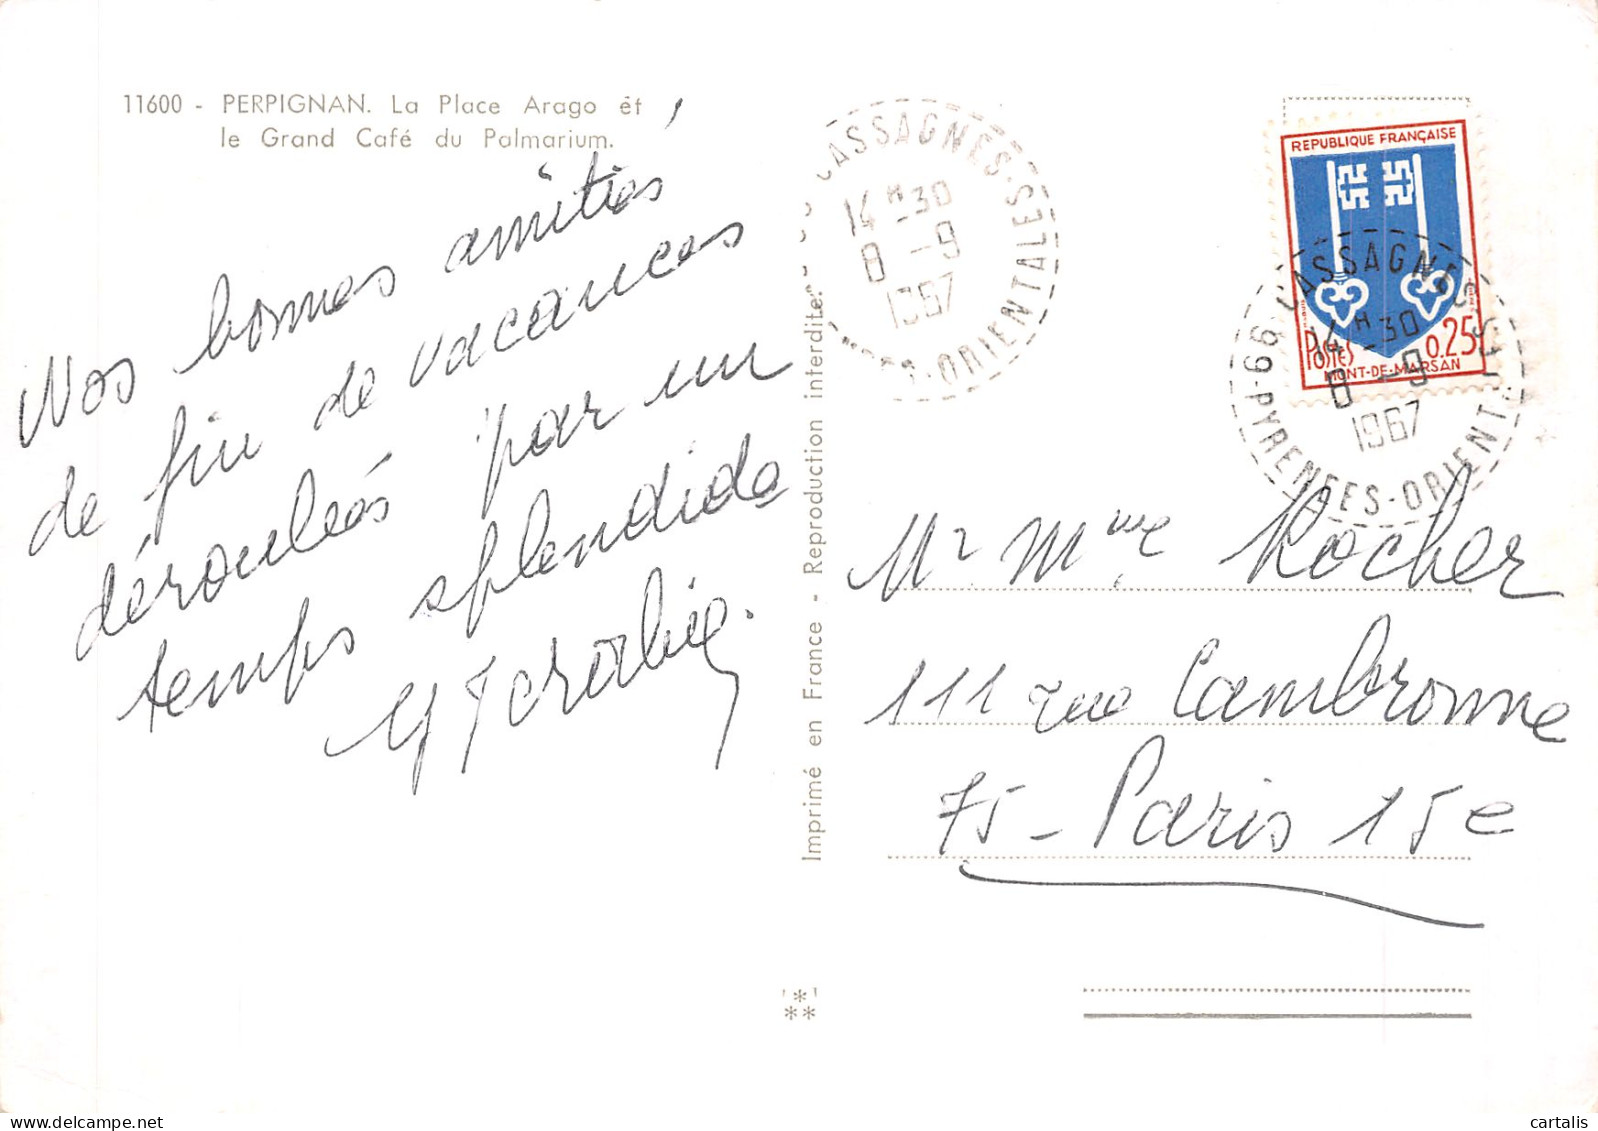 11600 - PERPIGNAN. La Place Arago et
le Grand Café du Palmarium.
Nos bonnes amitiés
de fin de vacances
déroulées par un
temps splendide
Imprimé en France - Reproduction interdite.
CASSAGNES
14 H -30
8 -9
1967
PYRENEES-ORIENTALES
REPUBLIQUE FRANÇAISE
POSTES
0,25
MONT-DE-MARSAN
66 CASSAGNES
14 H -30
8 -9
1967
PYRENEES-ORIENTALES
Mr Mme Rocher
111 rue Cambronne
75 - Paris 15e
cartalis
delcampe.net